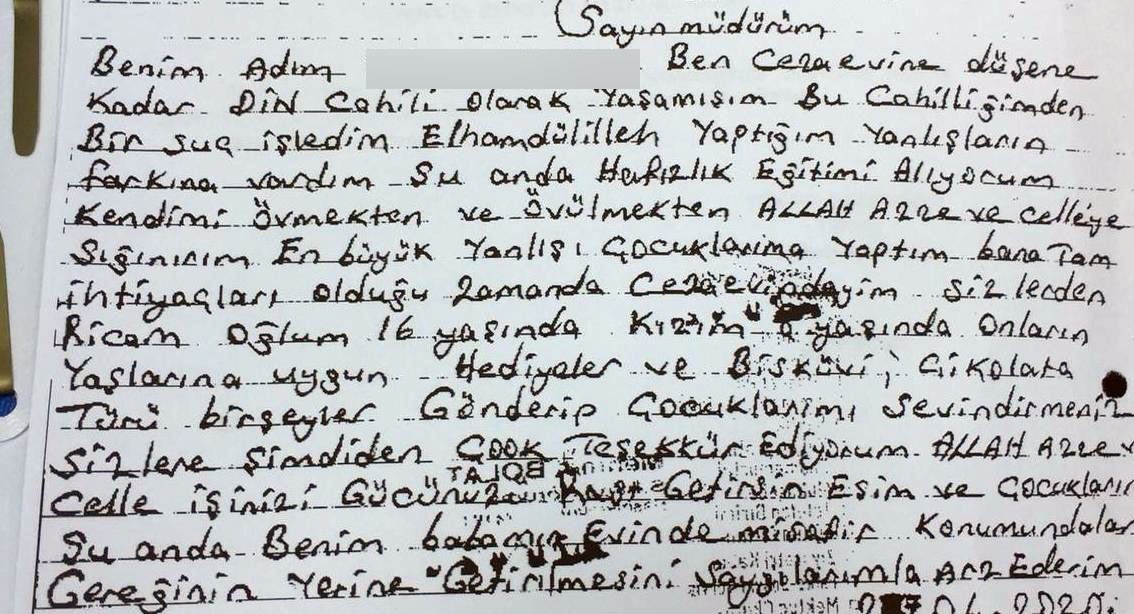 Sayın müdürüm
Benim Adım Ben Cezaevine düşene
Kadar DİN Cahili olarak Yaşamışım Bu Cahilliğimden
Bir suç işledim Elhamdülilleh Yaptığım Yanlışların
farkına vardım Şu anda Hafızlık Eğitimi Alıyorum
Kendimi Övmekten ve Övülmekten ALLAH Azze ve celle'ye
Sığınırım En büyük Yanlışı Çocuklarıma Yaptım bana Tam
ihtiyaçları olduğu zamanda Cezaevindeyim sizlerden
Ricam Oğlum 16 yaşında Kızım yaşında Onların
Yaşlarına uygun Hediyeler ve Bisküvi, Çikolata
Türü birşeyler Gönderip Çocuklarımı Sevindirmeniz
Sizlere şimdiden Çook Teşekkür Ediyorum ALLAH Azze v
Celle işinizi Gücünüze Getirsin Eşim ve Çocukların
Şu anda Benim babamın Evinde misafir Konumundalar
Gereğinin Yerine Getirilmesini Saygılarımla Arz Ederim